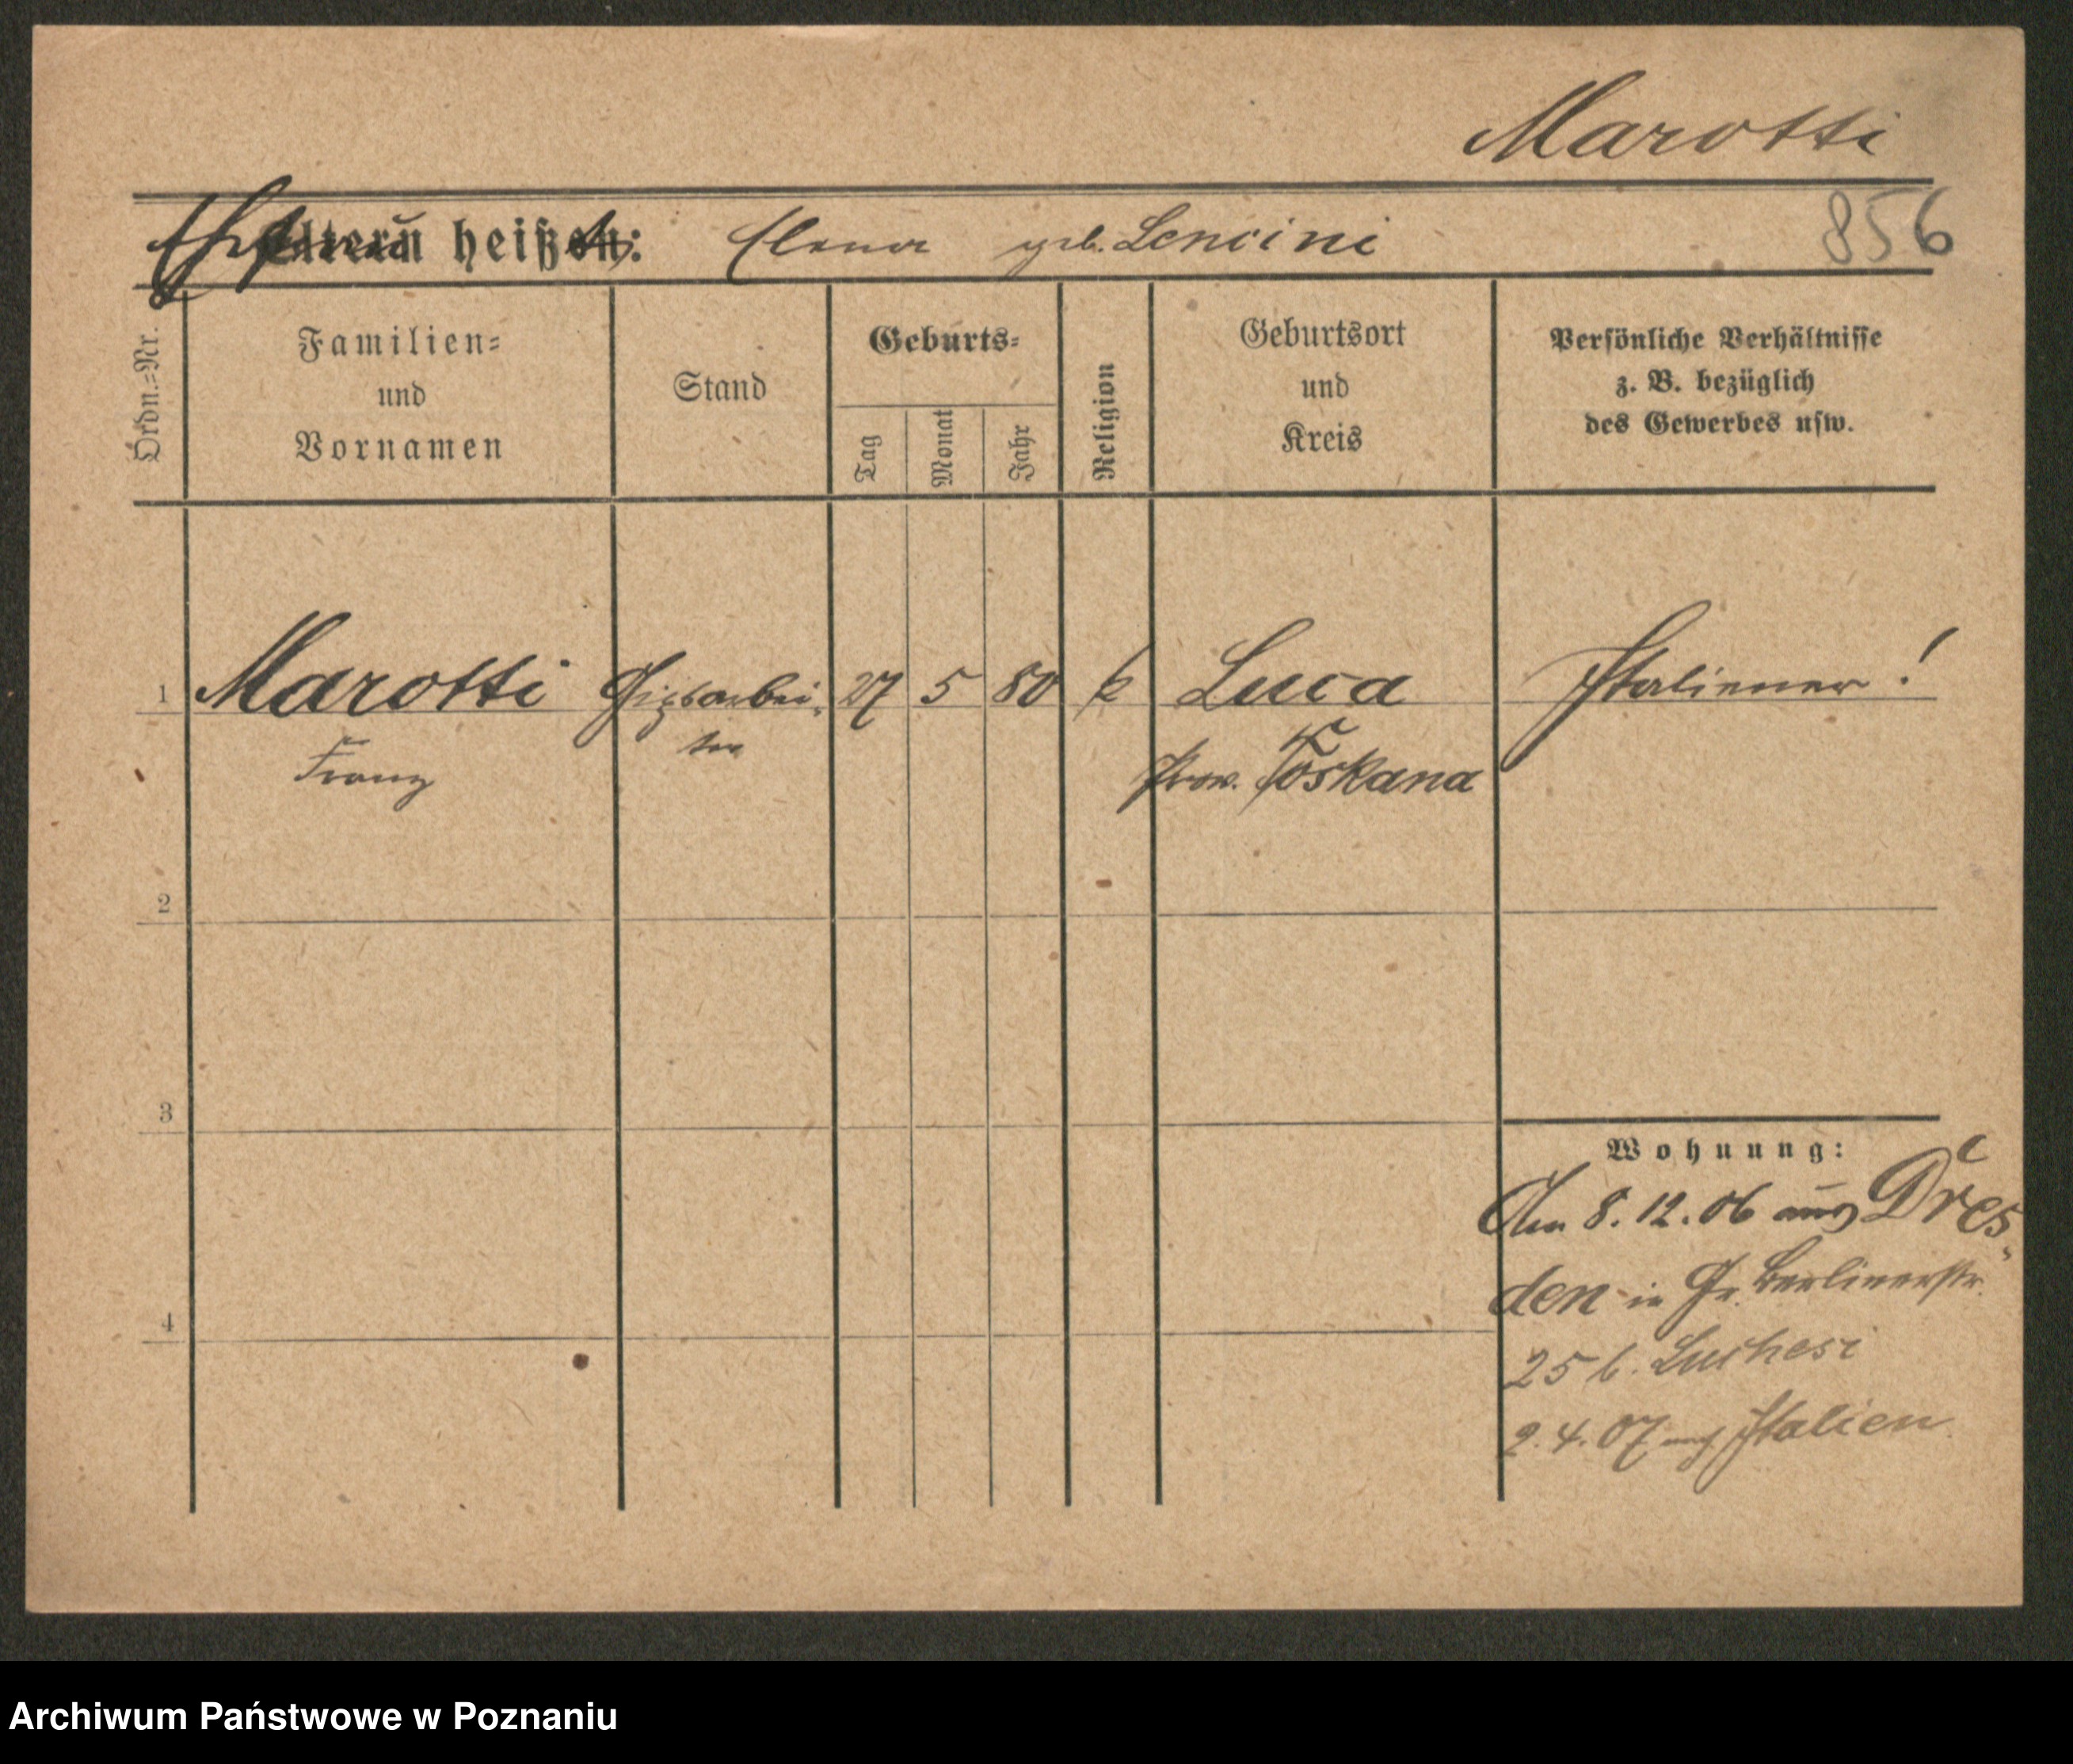 Marotti
856
Ehefrau heißt: Elena geb. Lencini
Ordn.=Nr.
Familien=
und
Vornamen
Stand
Geburts=
Tag
Monat
Jahr
Religion
Geburtsort
und
Kreis
Persönliche Verhältnisse
z. B. bezüglich
des Gewerbes usw.
1 Marotti Gipsarbei- 27 5 80 k Luca Italiener!
Franz ter Prov. Toskana
2
3
Wohnung:
Am 8.12.06 aus Dres
den in Gr. Berlinerstr.
4
25 b. Luchesi
2.4.07 nach Italien
Archiwum Państwowe w Poznaniu